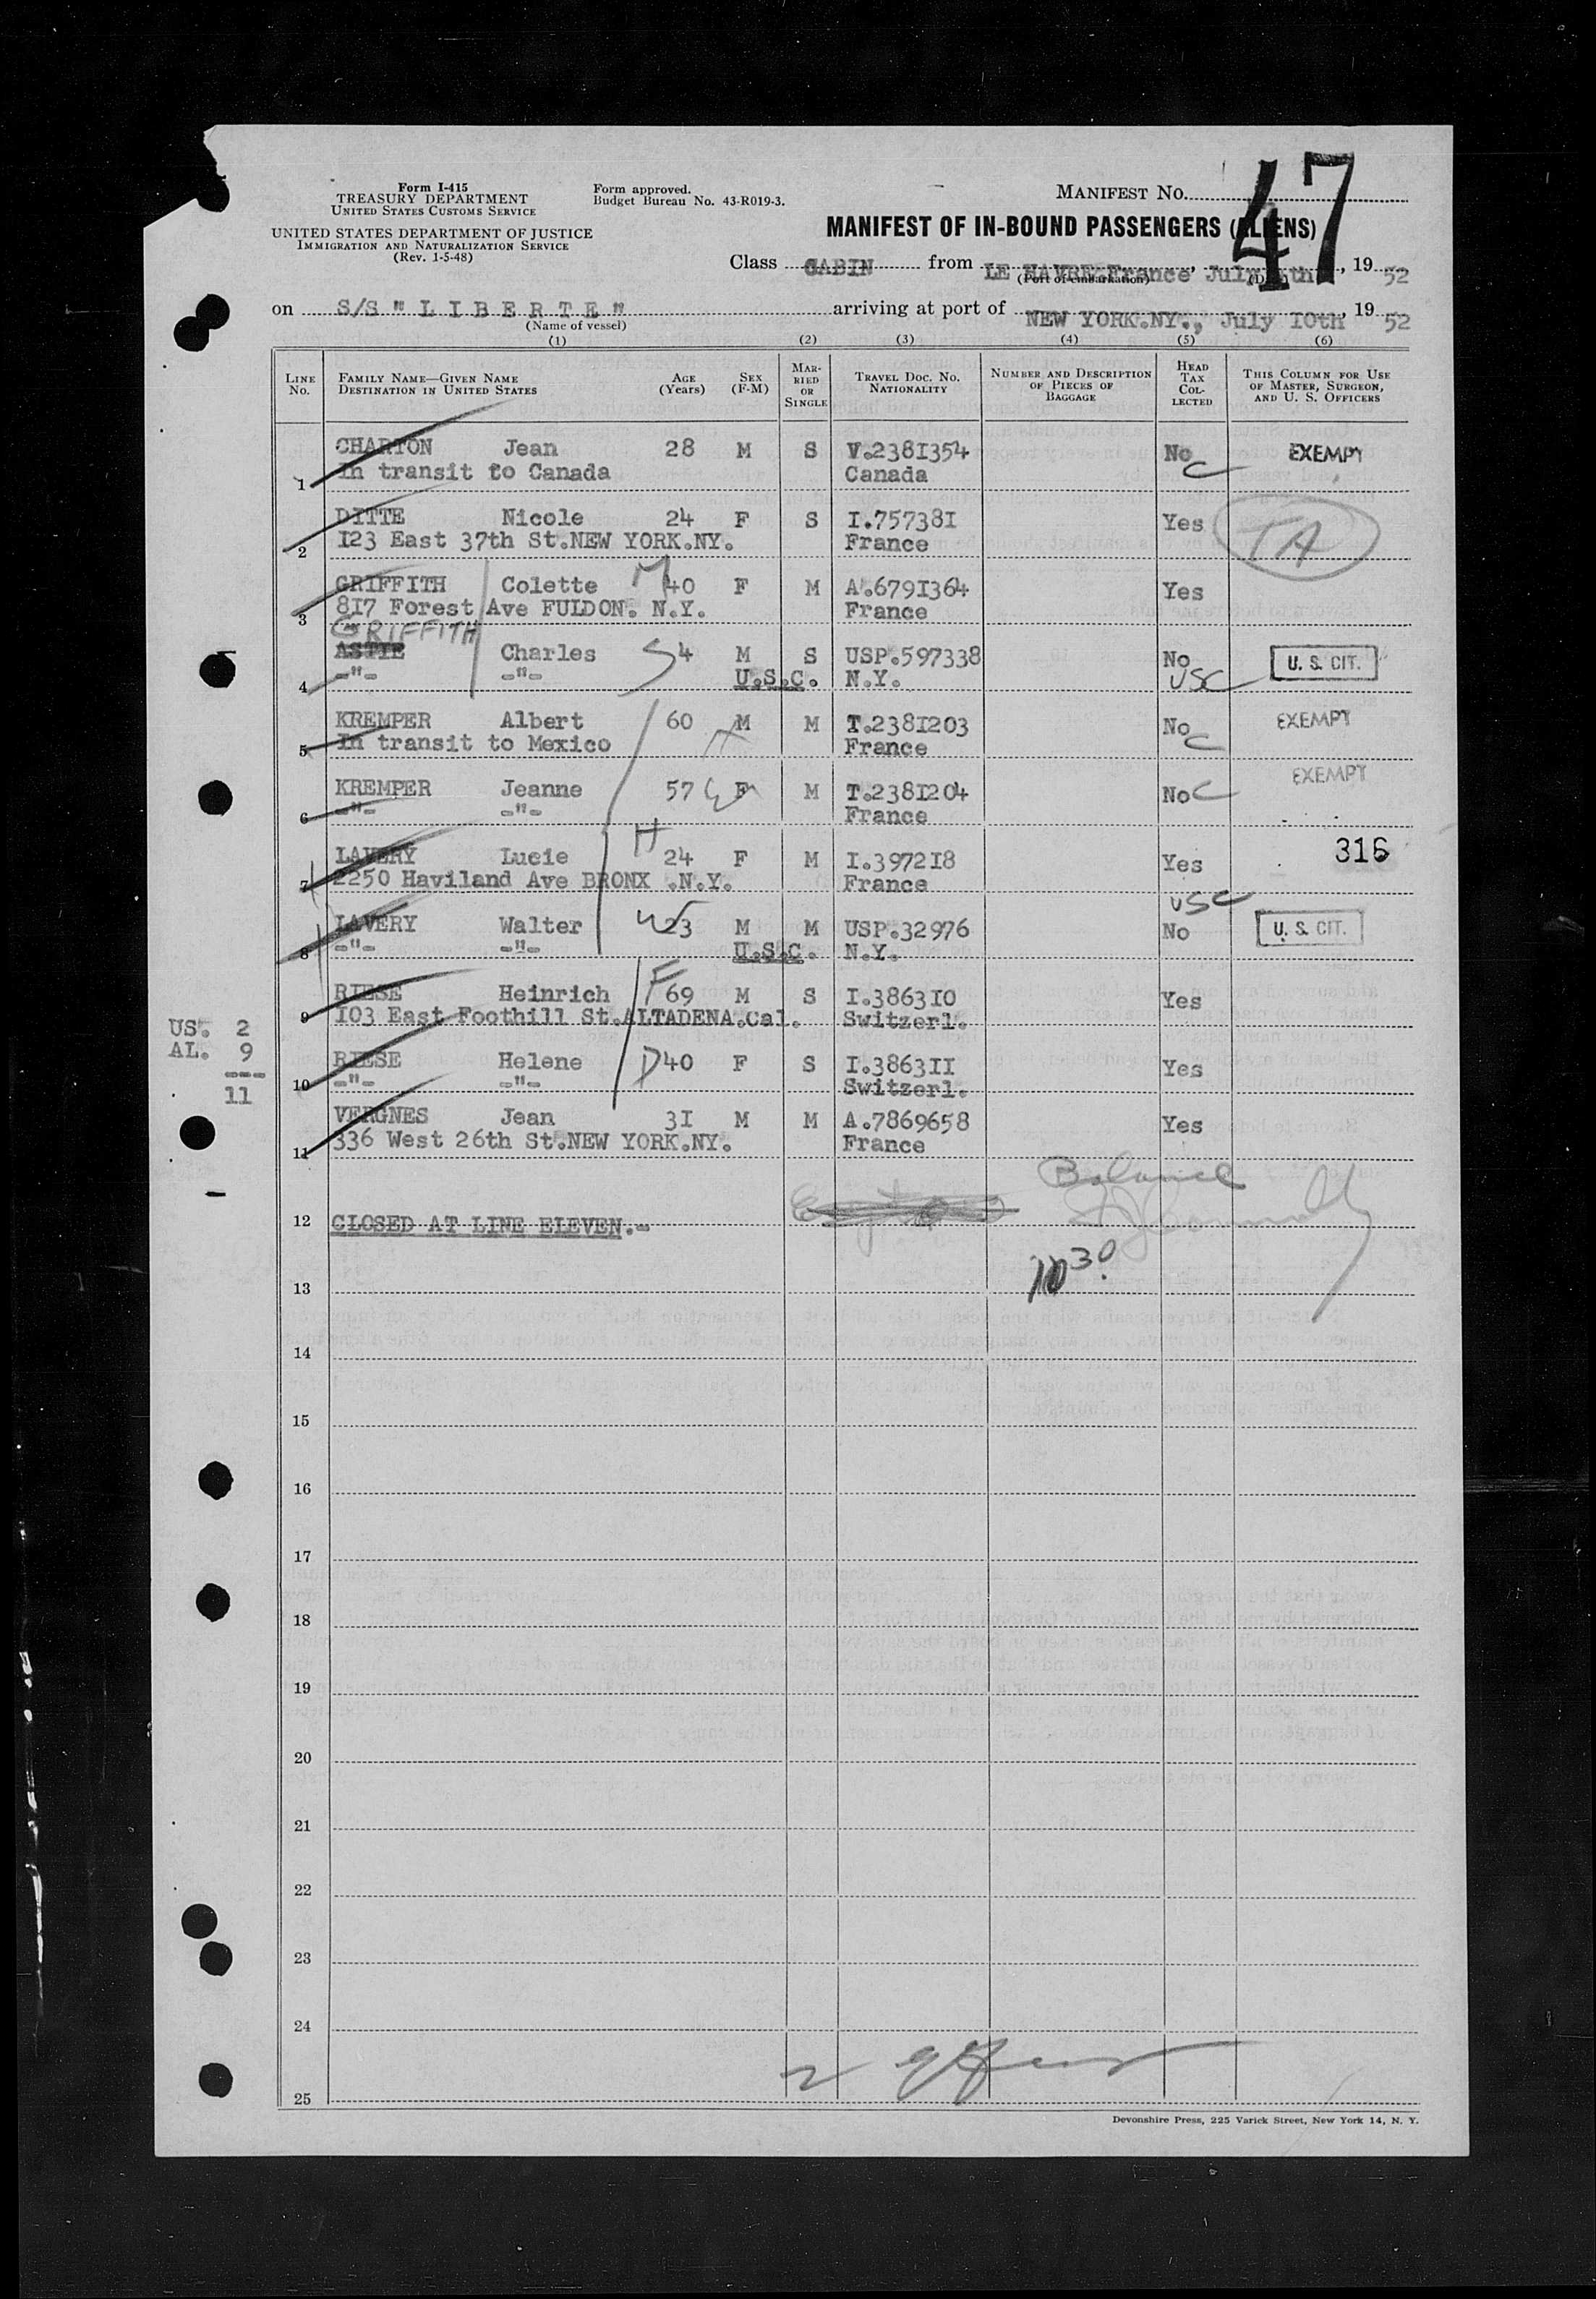 Form I-415
TREASURY DEPARTMENT
UNITED STATES CUSTOMS SERVICE
UNITED STATES DEPARTMENT OF JUSTICE
IMMIGRATION AND NATURALIZATION SERVICE
(Rev. 1-5-48)
Form approved.
Budget Bureau No. 43-R019-3.
MANIFEST No. 47
MANIFEST OF IN-BOUND PASSENGERS (ALIENS)
Class CABIN from LE HAVRE.France, July th, 19 52
(Port of embarkation)
on S/S " L I B E R T E " arriving at port of NEW YORK.NY., July 10th, 19 52
(Name of vessel)
(1) (2) (3) (4) (5) (6)
LINE No.
FAMILY NAME—GIVEN NAME
DESTINATION IN UNITED STATES
AGE (Years)
SEX (F-M)
MARRIED OR SINGLE
TRAVEL DOC. NO. NATIONALITY
NUMBER AND DESCRIPTION OF PIECES OF BAGGAGE
HEAD TAX COLLECTED
THIS COLUMN FOR USE OF MASTER, SURGEON, AND U. S. OFFICERS
CHARTON Jean 28 M S V.2381354 No EXEMPT
1 In transit to Canada Canada C
DITTE Nicole 24 F S I.757381 Yes TA
2 123 East 37th St.NEW YORK.NY. France
GRIFFITH Colette M 40 F M A.6791364 Yes
3 817 Forest Ave FULDON. N.Y. France
GRIFFITH
ASTIE Charles S 4 M S USP.597338 No U. S. CIT.
4 -"- -"- U.S.C. N.Y. USC
KREMPER Albert 60 M M T.2381203 No EXEMPT
5 In transit to Mexico H France C
KREMPER Jeanne 57 W F M T.2381204 No C EXEMPT
6 -"- -"- France
LAVERY Lucie H 24 F M I.397218 Yes 316
7 2250 Haviland Ave BRONX .N.Y. France
USC
LAVERY Walter W 23 M M USP.32976 No U. S. CIT.
8 -"- -"- U.S.C. N.Y.
RIESE Heinrich F 69 M S I.386310 Yes
9 103 East Foothill St.ALTADENA.Cal. Switzerl.
US. 2
AL. 9
---
11
RIESE Helene D 40 F S I.386311 Yes
10 -"- -"- Switzerl.
VERGNES Jean 31 M M A.7869658 Yes
11 336 West 26th St.NEW YORK.NY. France
Balance
12 CLOSED AT LINE ELEVEN.-
13
14
15
16
17
18
19
20
21
22
23
24
25
Devonshire Press, 225 Varick Street, New York 14, N. Y.